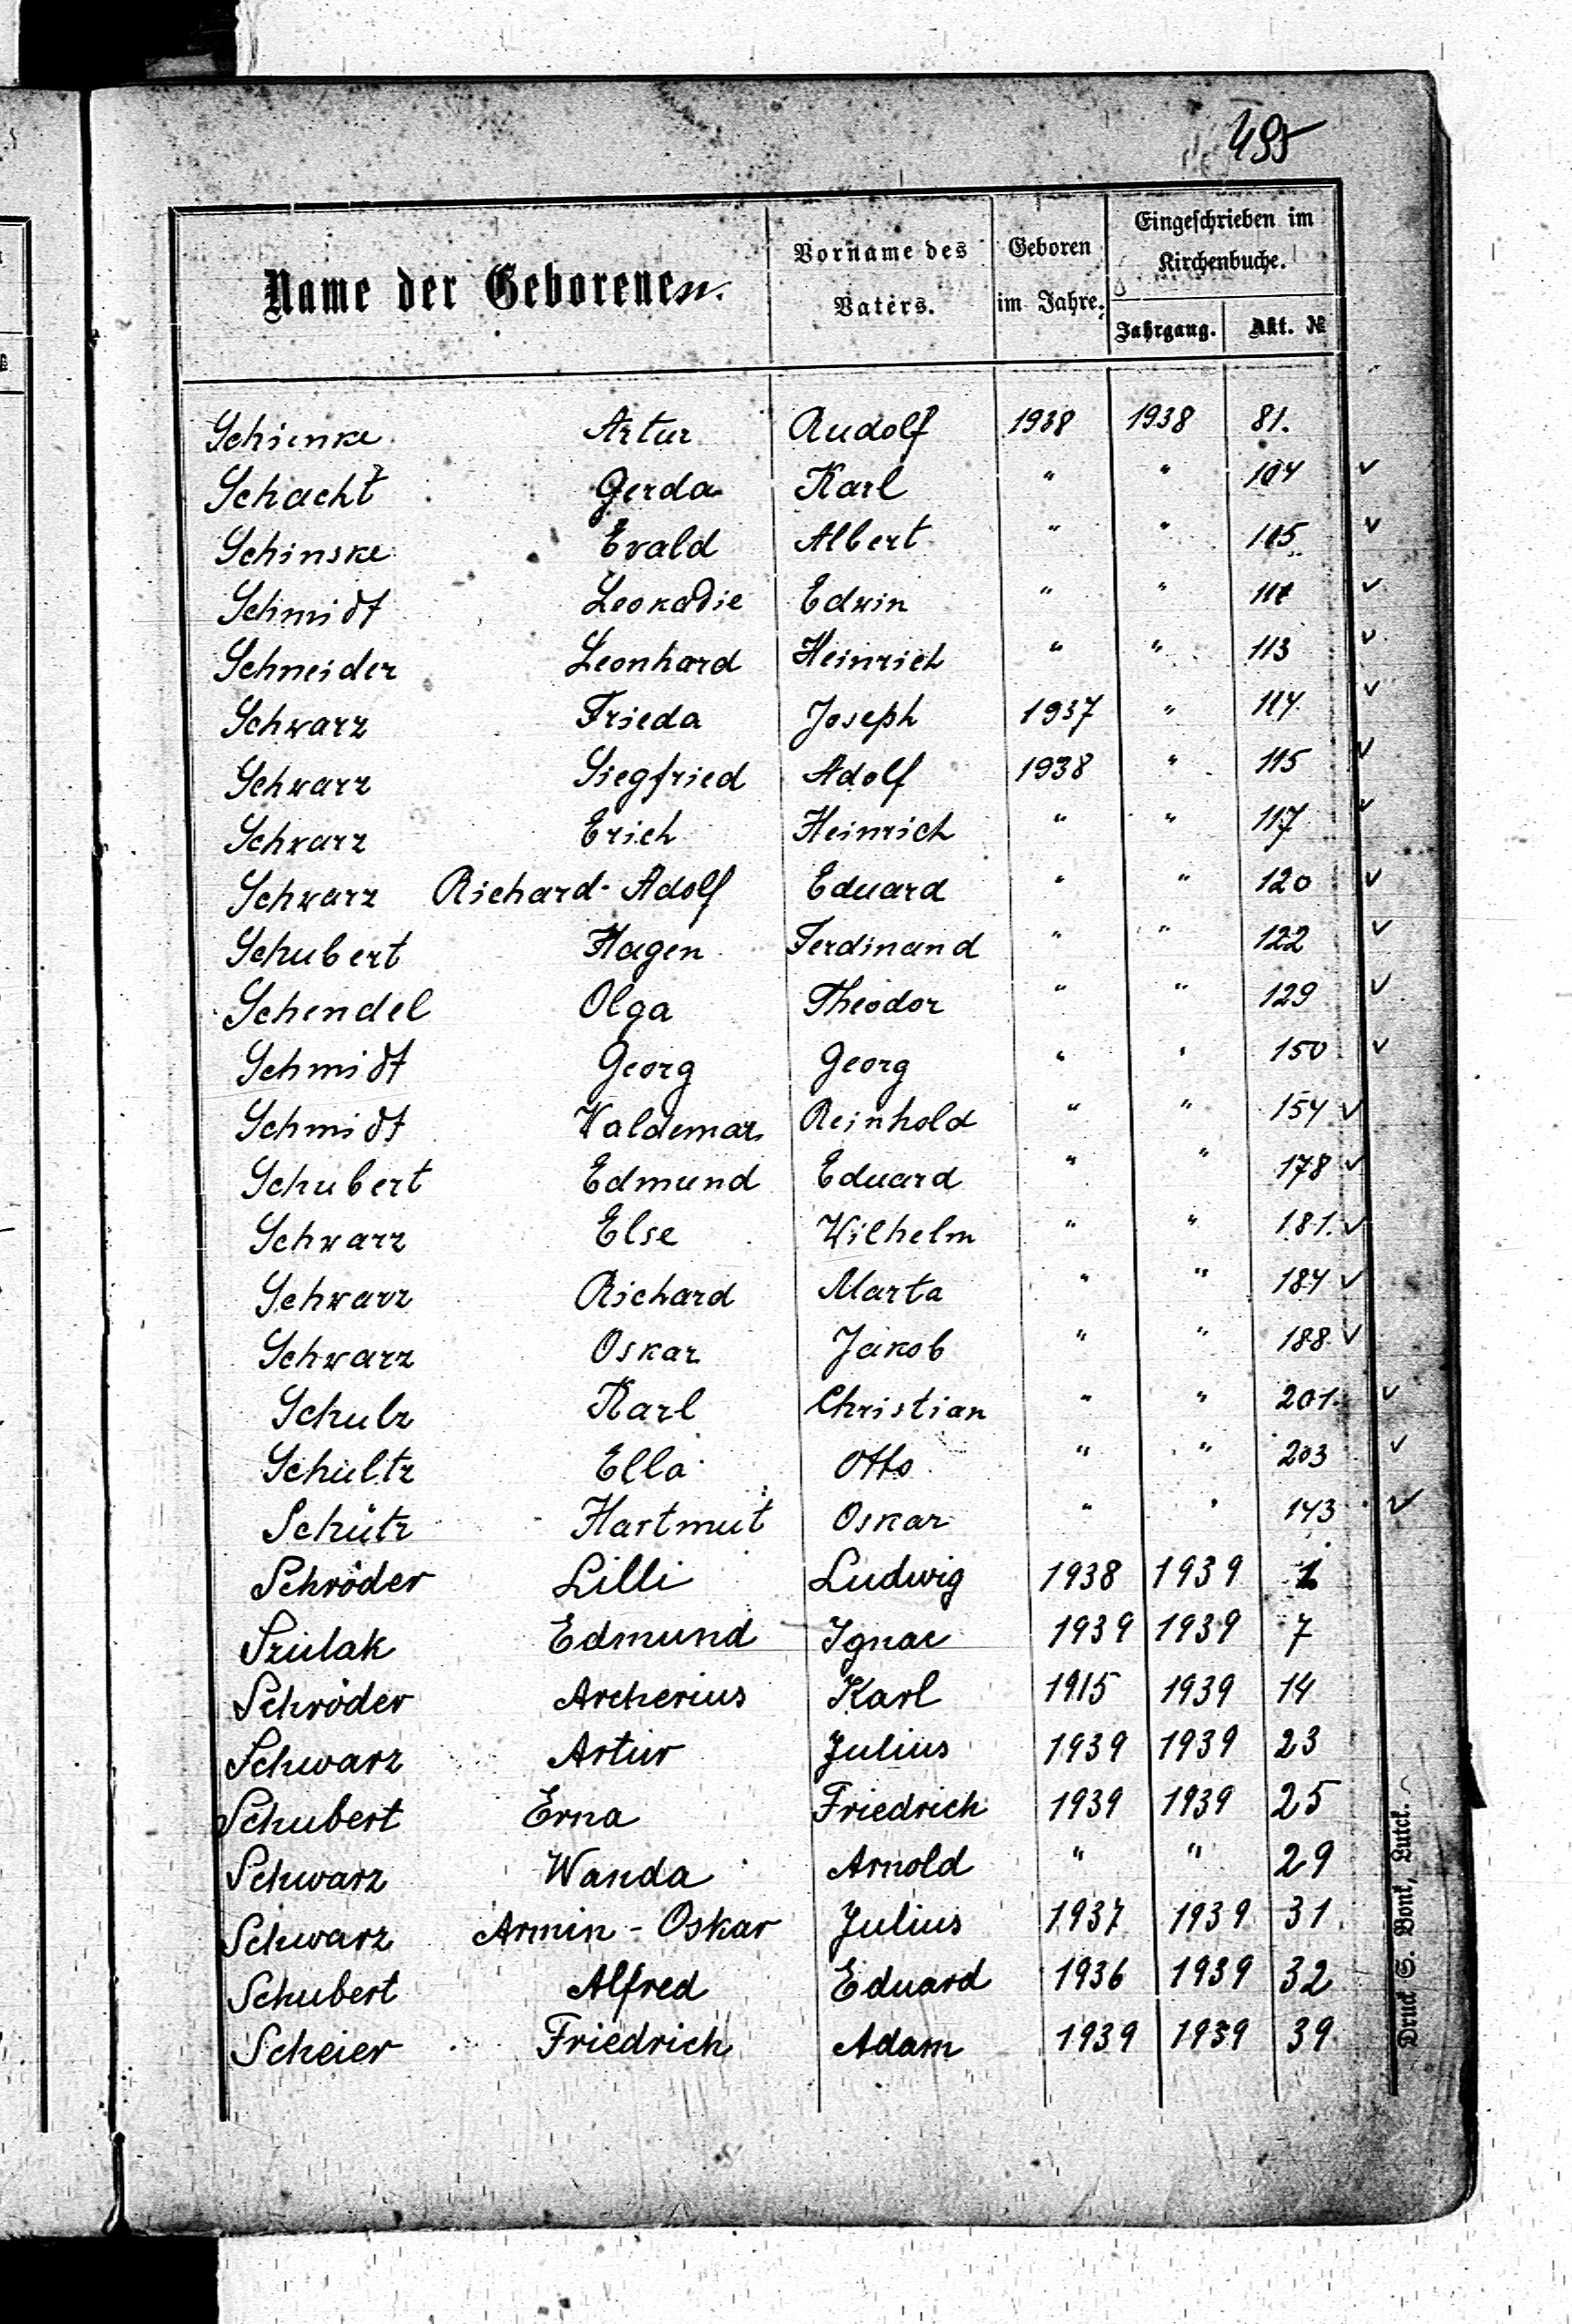 495
Name der Geborenen.
Vorname des Vaters.
Geboren im Jahre.
Eingeschrieben im Kirchenbuche.
Jahrgang.
Akt. №
Schienke Artur Rudolf 1938 1938 81.
Schacht Gerda Karl " " 104 ✓
Schinske Evald Albert " " 105 ✓
Schmidt Leokadie Edwin " " ✓
Schneider Leonhard Heinrich " " 113 ✓
Schwarz Frieda Joseph 1937 " 114 ✓
Schwarz Siegfried Adolf 1938 " 115 ✓
Schwarz Erich Heinrich " " 117 ✓
Schwarz Richard-Adolf Eduard " " 120 ✓
Schubert Hagen Ferdinand " " 122 ✓
Schendel Olga Theodor " " 129 ✓
Schmidt Georg Georg " " 150 ✓
Schmidt Waldemar Reinhold " " 154 ✓
Schubert Edmund Eduard " " 178 ✓
Schwarz Else Wilhelm " " 181. ✓
Schwarz Richard Marta " " 184 ✓
Schwarz Oskar Jakob " " 188. ✓
Schulz Karl Christian " " 201. ✓
Schultz Ella Otto " " 203 ✓
Schütz Hartmut Oskar " " 143 ✓
Schröder Lilli Ludwig 1938 1939 1
Sziulak Edmund Ignac 1939 1939 7
Schröder Archerius Karl 1915 1939 14
Schwarz Artur Julius 1939 1939 23
Schubert Erna Friedrich 1939 1939 25
Schwarz Wanda Arnold " " 29
Schwarz Armin - Oskar Julius 1937 1939 31.
Schubert Alfred Eduard 1936 1939 32
Scheier Friedrich Adam 1939 1939 39
Druck S. Bonk, Lutck.